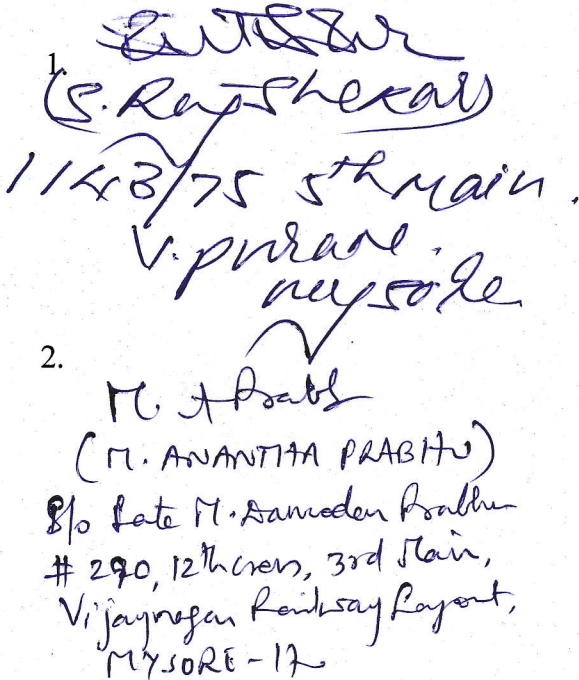 1.
(S. Rajshekar)
1143/75 5th Main.
V. puram.
mysore
2.
M. A Prabh
(M. ANANTHA PRABHU)
S/o Late M. Damodar Prabhu
# 290, 12th cross, 3rd Main,
Vijaynagar Railway Layout,
MYSORE - 17